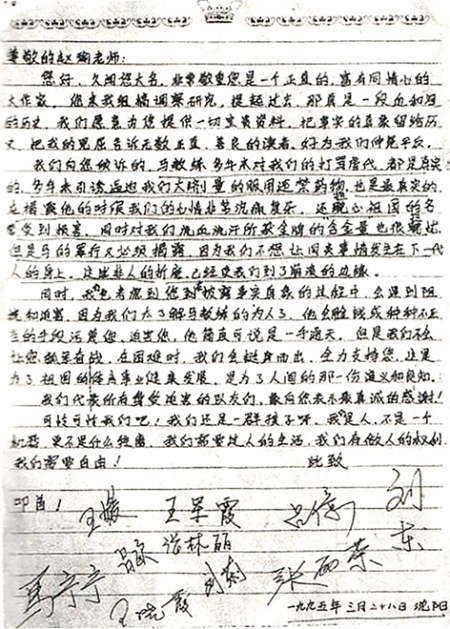 尊敬的赵瑜老师：
您好，久闻您大名，非常敬重您是一个正直的，富有同情心的
大作家。您来我组搞调察研究，提起过去，那真是一段血和泪
的历史，我们愿意为您提供一切宝贵资料，把事实的真象留给历
史，把我的冤屈告诉无数正直、善良的读者，好为我们伸冤平反。
我们向您倾诉的，马教练多年来对我们的打骂虐代，都是真实
的。多年来引诱逼迫我们大剂量的服用违禁药物，也是最真实的。
揭发他的时候我们的心情非常沉痛复杂，还耽心祖国的名
誉受到损害，同时对我们流血流汗所获金牌的含金量也很
但是马的罪行又必须揭露，因为我们不想让同类事情发生在下一代
人的身上，这些非人的折磨，已经使我们到了崩溃的边缘。
同时，我们也考虑到您到披露事实真象的过程中，会遇到阻
和迫害，因为我们太了解马教练的为人了，他会贿赂或种种不正
当的手段污蔑您，迫害您，他简直可说是一手通天，但是我们不会
让您孤军奋战，在困难时，我们会挺身而出，全力支持您，这是
为了祖国的体育事业健康发展，是为了人间的那一份道义和良知。
我们代表所有尊受迫害的队友们，最向您表示最真诚的感谢！
可怜可怜我们吧！我们还是一群孩子呀，我们是人，不是一个
机器，更不是什么牲畜，我们需要过人的生活，我们有做人的权利
我们需要自由！
此致
叩首！
王媛 王军霞 吕亿 刘东
吕欧 谢林丽
马宁宁 王晓霞 刘莉 张丽荣
一九九五年三月二十八日沈阳